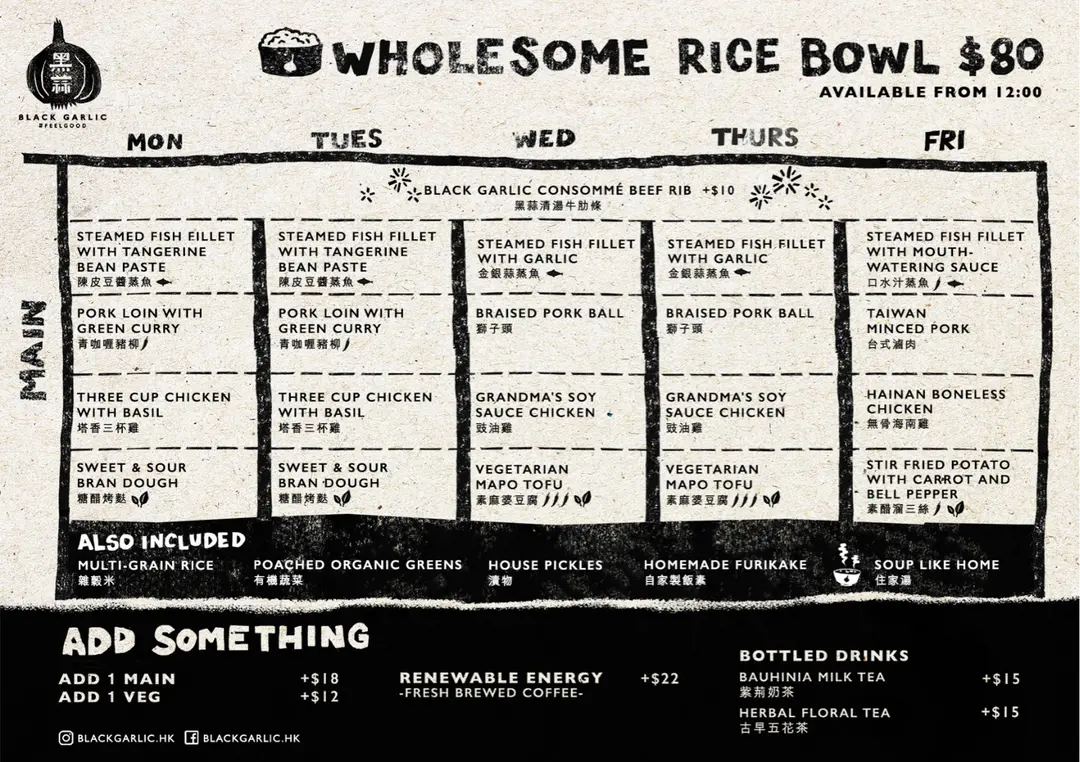 黑蒜
BLACK GARLIC
#FEELGOOD
WHOLESOME RICE BOWL $80
AVAILABLE FROM 12:00
MON
TUES
WED
THURS
FRI
MAIN
BLACK GARLIC CONSOMMÉ BEEF RIB +$10
黑蒜清湯牛肋條
STEAMED FISH FILLET
WITH TANGERINE
BEAN PASTE
陳皮豆醬蒸魚
STEAMED FISH FILLET
WITH TANGERINE
BEAN PASTE
陳皮豆醬蒸魚
STEAMED FISH FILLET
WITH GARLIC
金銀蒜蒸魚
STEAMED FISH FILLET
WITH GARLIC
金銀蒜蒸魚
STEAMED FISH FILLET
WITH MOUTH-
WATERING SAUCE
口水汁蒸魚
PORK LOIN WITH
GREEN CURRY
青咖喱豬柳
PORK LOIN WITH
GREEN CURRY
青咖喱豬柳
BRAISED PORK BALL
獅子頭
BRAISED PORK BALL
獅子頭
TAIWAN
MINCED PORK
台式滷肉
THREE CUP CHICKEN
WITH BASIL
塔香三杯雞
THREE CUP CHICKEN
WITH BASIL
塔香三杯雞
GRANDMA'S SOY
SAUCE CHICKEN
豉油雞
GRANDMA'S SOY
SAUCE CHICKEN
豉油雞
HAINAN BONELESS
CHICKEN
無骨海南雞
SWEET & SOUR
BRAN DOUGH
糖醋烤麩
SWEET & SOUR
BRAN DOUGH
糖醋烤麩
VEGETARIAN
MAPO TOFU
素麻婆豆腐
VEGETARIAN
MAPO TOFU
素麻婆豆腐
STIR FRIED POTATO
WITH CARROT AND
BELL PEPPER
素醋溜三絲
ALSO INCLUDED
MULTI-GRAIN RICE
雜穀米
POACHED ORGANIC GREENS
有機蔬菜
HOUSE PICKLES
漬物
HOMEMADE FURIKAKE
自家製飯素
SOUP LIKE HOME
住家湯
ADD SOMETHING
ADD 1 MAIN +$18
ADD 1 VEG +$12
RENEWABLE ENERGY +$22
-FRESH BREWED COFFEE-
BOTTLED DRINKS
BAUHINIA MILK TEA +$15
紫荊奶茶
HERBAL FLORAL TEA +$15
古早五花茶
BLACKGARLIC.HK BLACKGARLIC.HK